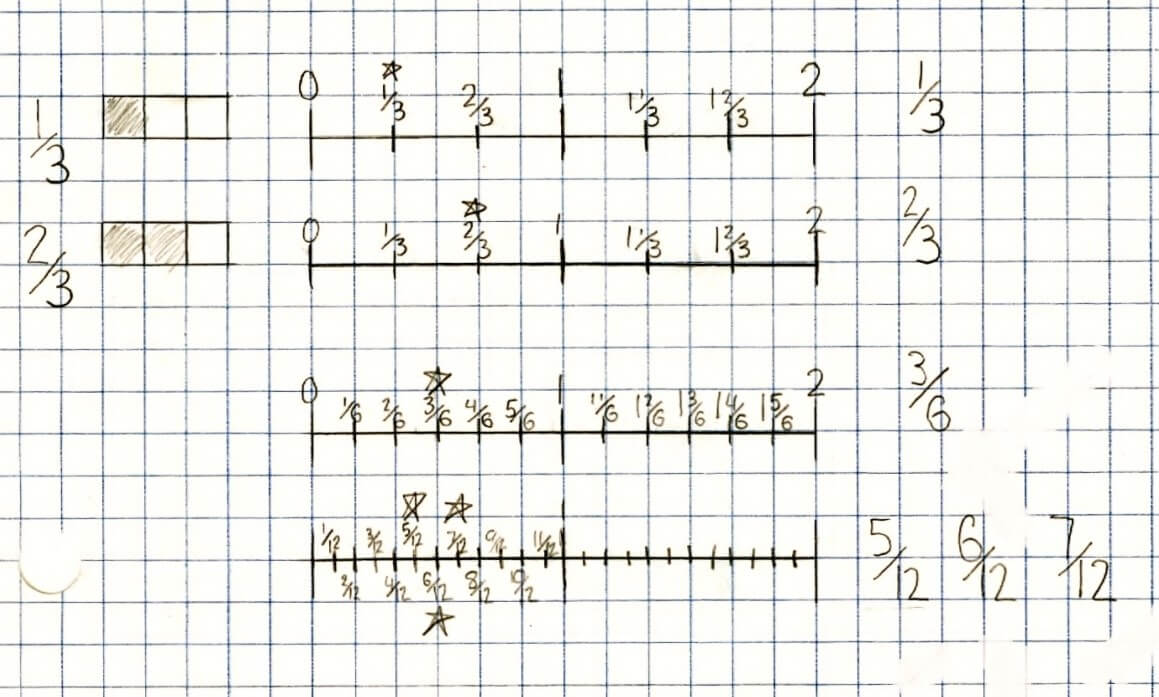 1/3
0 1/3 2/3 1 1 1/3 1 2/3 2
1/3
2/3
0 1/3 2/3 1 1 1/3 1 2/3 2
2/3
0 1/6 2/6 3/6 4/6 5/6 1 1 1/6 1 2/6 1 3/6 1 4/6 1 5/6 2
3/6
1/12 3/12 5/12 7/12 9/12 11/12
2/12 4/12 6/12 8/12 10/12
5/12 6/12 7/12